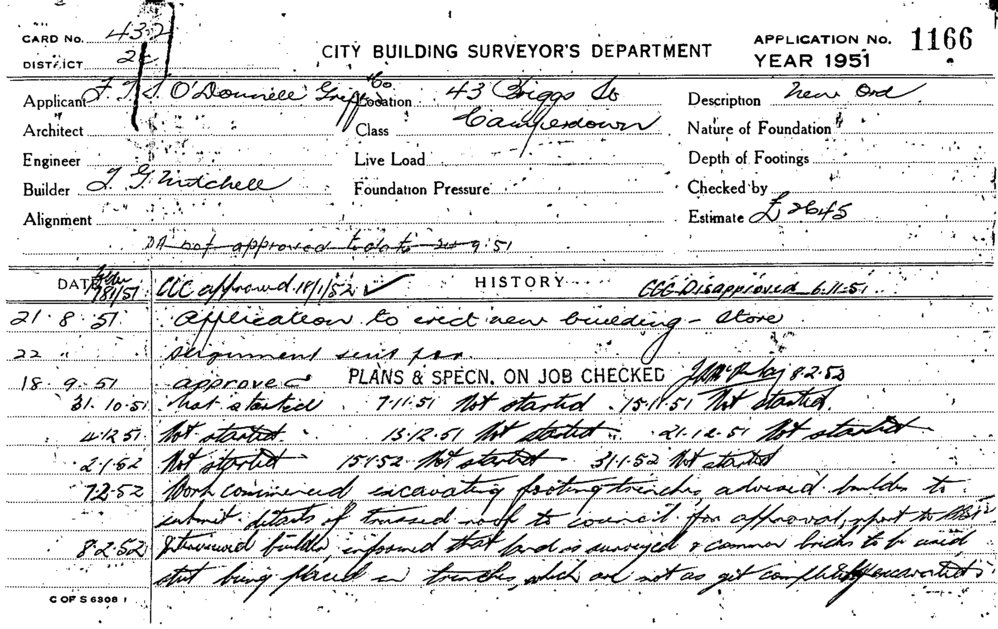 CARD No. 432
DISTRICT 2c
CITY BUILDING SURVEYOR'S DEPARTMENT
APPLICATION No. 1166
YEAR 1951
Applicant F. T. S. O'Donnell Griffin Co
Location 43 Briggs St
Camperdown
Description New Ord
Architect
Class
Nature of Foundation
Engineer
Live Load
Depth of Footings
Builder T. G. Mitchell
Foundation Pressure
Checked by
Alignment
Estimate £2645
DA not approved to date 9.51
DATE
HISTORY
CCC approved 18/1/52 ✓
CCC Disapproved 6.11.51
21.8.51 Application to erect new building - Store
22 "
18.9.51 approved PLANS & SPECN. ON JOB CHECKED 8.2.52
31.10.51 Not started 7.11.51 Not started 15.11.51 Not started
4.12.51 Not started 13.12.51 Not started 21.12.51 Not started
2.1.52 Not started 15.1.52 Not started 31.1.52 Not started
7.2.52 Work commenced excavating footing trenches, advised builder to
submit details of trussed roof to council for approval, report to
8.2.52 Interviewed builder, informed that land is surveyed & common bricks to be used
steel being placed in trenches, which are not as yet completely excavated
C OF S 6308 1